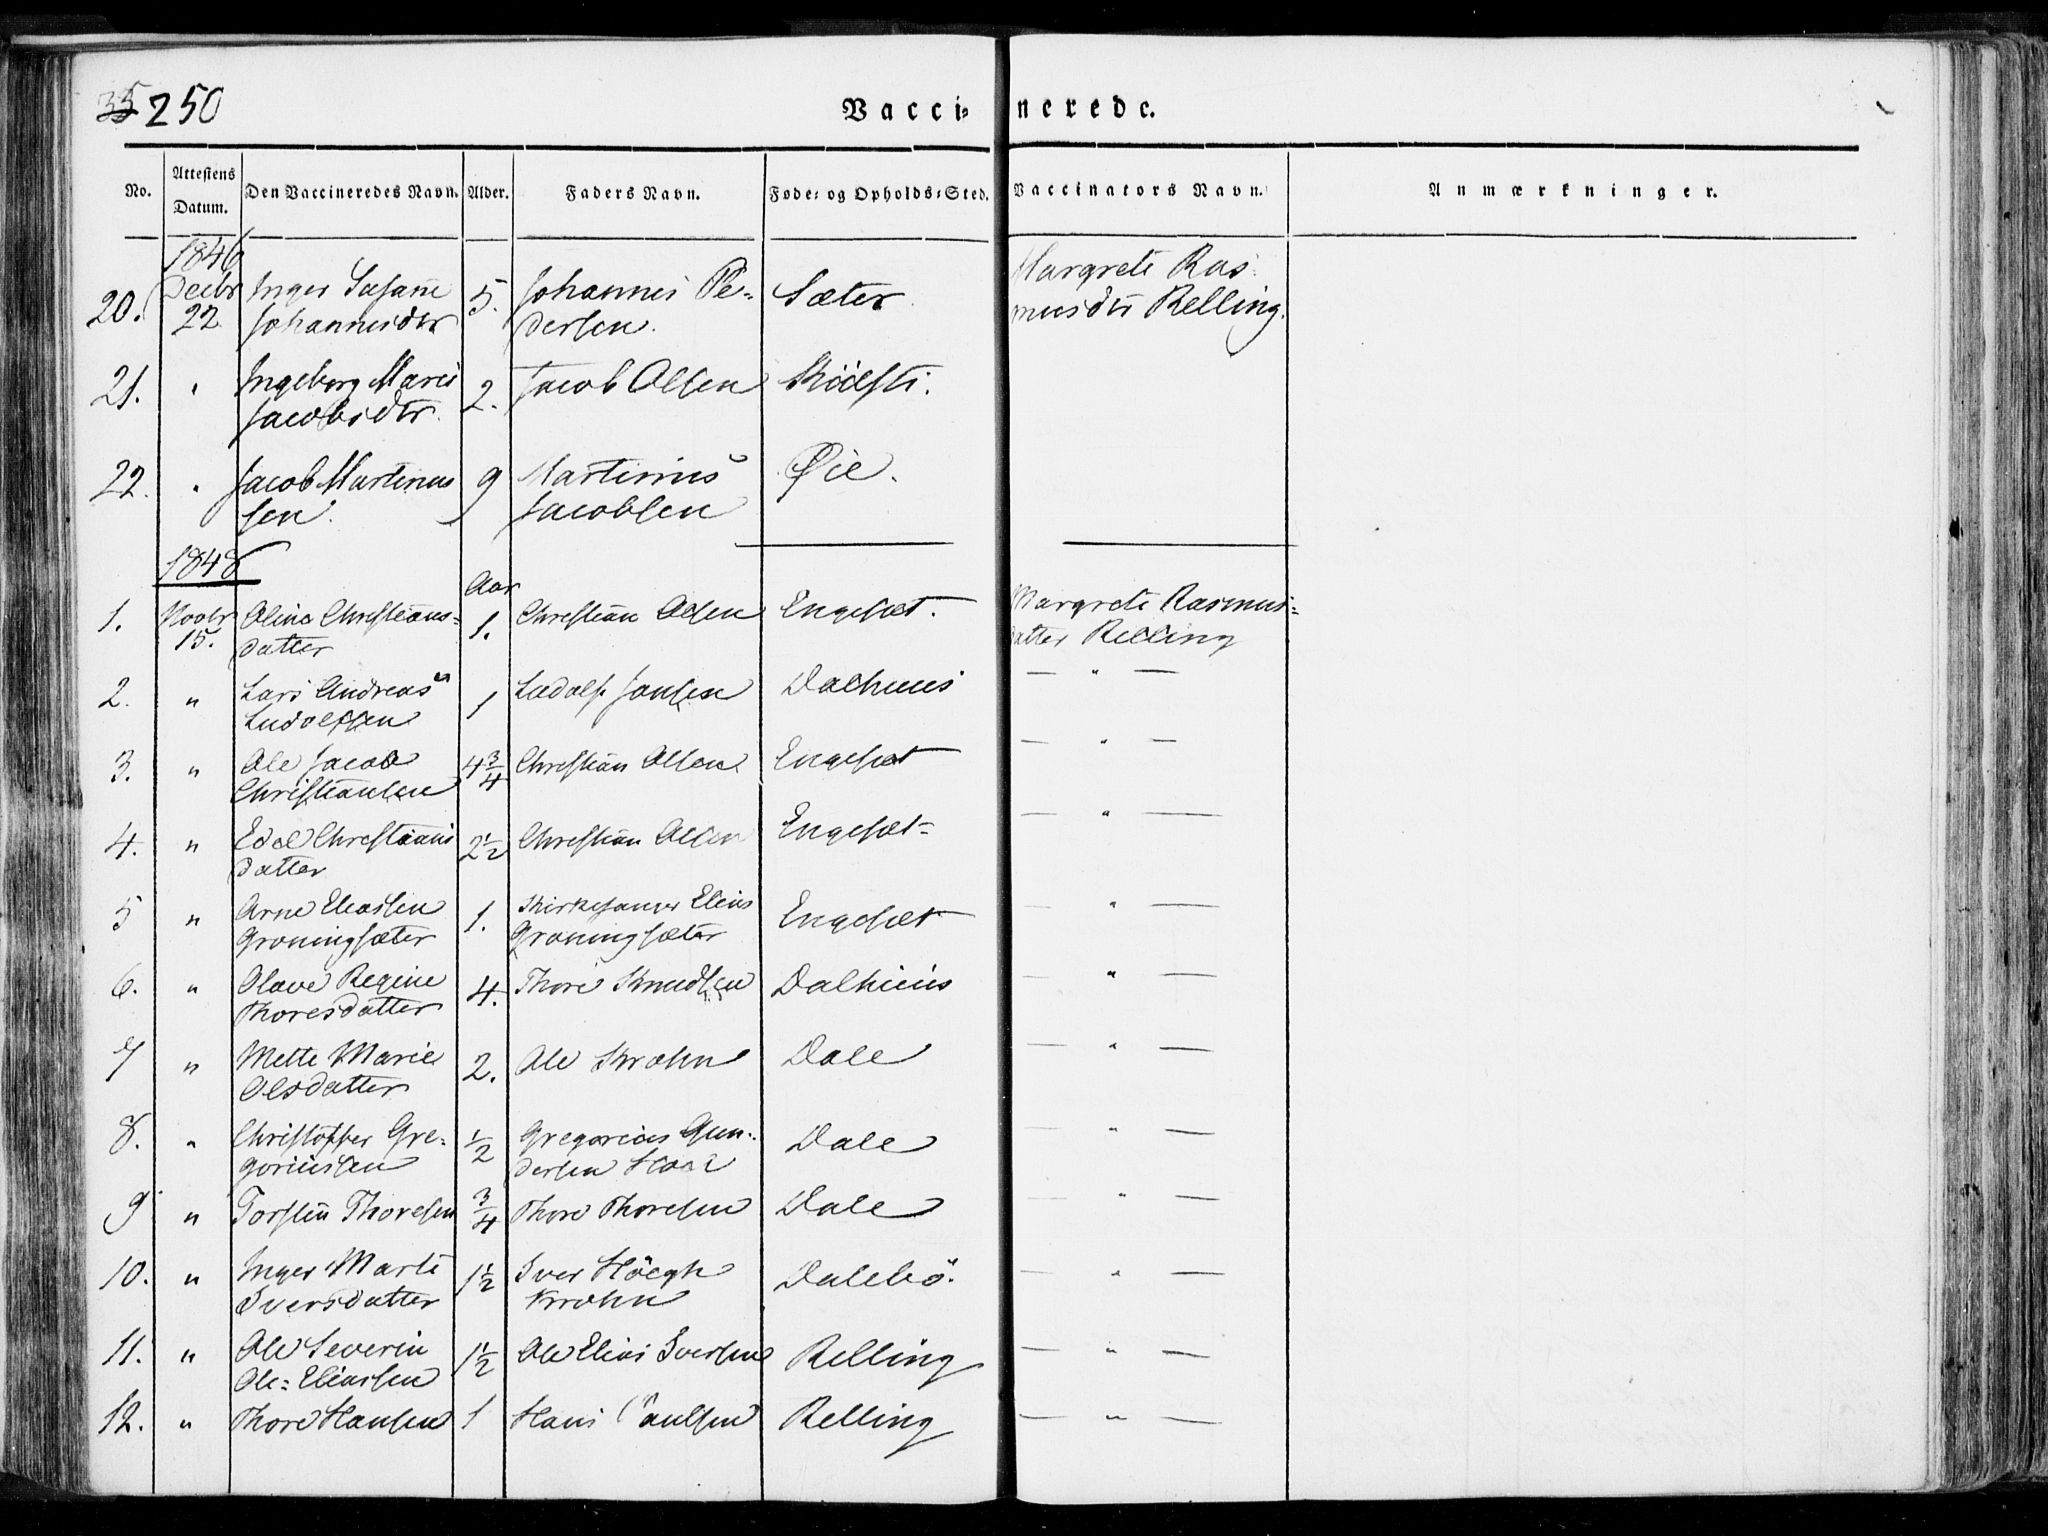 35 250
Vaccinerede.
No. Attestens Datum. Den Vaccineredes Navn. Alder. Faders Navn. Føde- og Opholds-Sted. Vaccinators Navn. Anmærkninger.
1846
20. Decbr 22. Inger Susane Johannesdtr 5. Johannes Pedersen. Sæter Margrete Rasmusdtr Relling.
21. " Ingeborg Marie Jacobsdtr. 2. Jacob Olsen
22. " Jacob Martinussen. 9 Martinus Jacobsen Øie.
1848
Aar
1. Novbr 15. Oline Christians-datter 1. Christian Olsen Engeset. Margrete Rasmus-datter Relling
2. " Lars Andreas Ludolfsen 1 Ludolf Jansen Dalhuus — " —
3. " Ole Jacob Christiansen 4 3/4 Christian Olsen Engeset — " —
4. " Edel Christians datter 2 1/2 Christian Olsen Engeset — " —
5 " Arne Eliassen Groningsæter 1. Kirkesanger Elias Groningsæter Engeset — " —
6. " Olave Regine Thoresdatter 4. Thore Knudsen Dalhuus — " —
7 " Mette Marie Olsdatter 2. Ole Krohn Dale — " —
8. " Christoffer Gre-goriussen 1/2 Gregorius Gun-dersen Dale — " —
9 " Torsten Thoresen 3/4 Thore Thoresen Dale — " —
10. " Inger Marte Iversdatter 1 1/2 Iver Höegh Krohn Dalebö. — " —
11. " Ole Severin Ole-Eliassen 1 1/2 Ole Elias Iversen Relling — " —
12. " Thore Hansen 1 Hans Paulsen Relling — " —